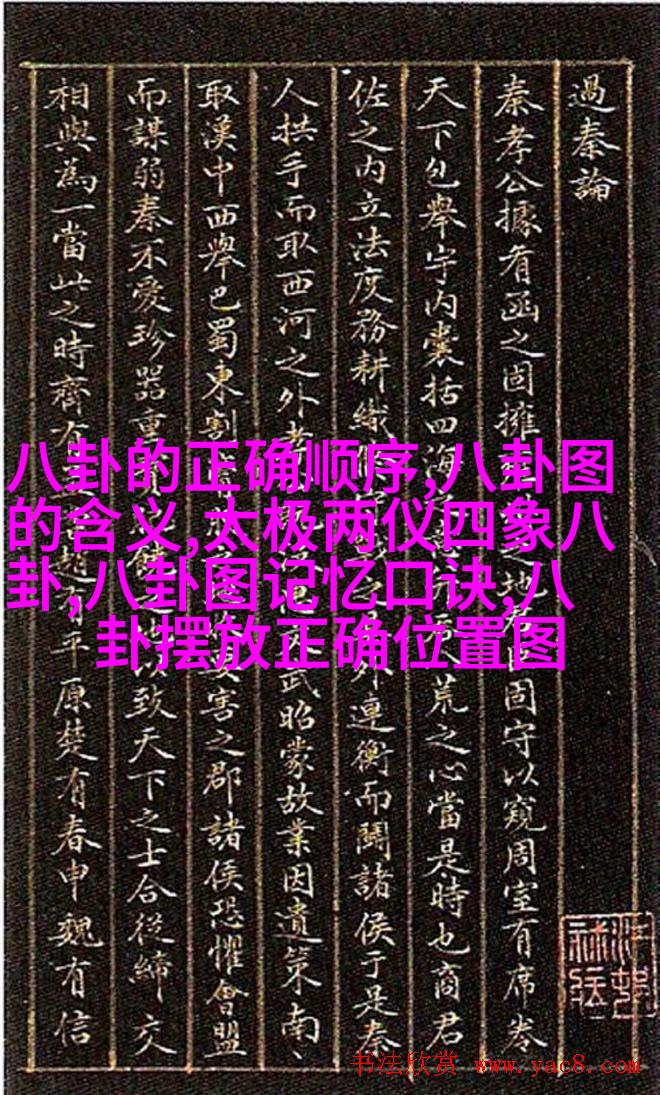 過秦論
秦孝公據有函之固擁地君固守以窺周室有席卷
天下包舉宇内囊括四海荒之心當是時也商君
佐之内立法度務耕織外連衡而鬭諸侯于是秦
人拱手而取西河之外武昭蒙故業因遺策南、
取漢中西舉巴蜀東割害之郡諸侯恐懼會盟
而謀弱秦不愛珍器重以致天下之士合從締交
相與為一當此之時齊有平原楚有春申魏有信
八卦的正确顺序,八卦图
的含义,太极两仪四象八
卦,八卦图记忆口诀,八
卦摆放正确位置图
书法欣赏 www.yac8.com